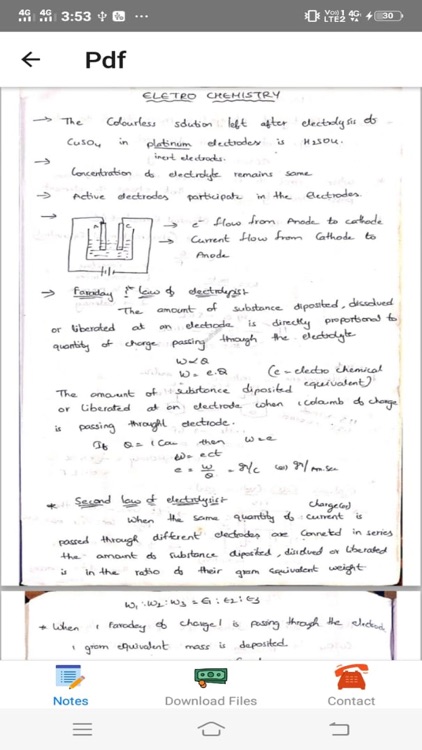 4G 4G 3:53 Vo)) 1 LTE2 4G 30
Pdf
ELETRO CHEMISTRY
→ The Colourless solution left after electrolysis of
CuSO4 in platinum electrodes is H2SO4.
inert electrode.
→ Concentration of electrolyte remains same
→ Active electrodes participate in the Electrodes.
→ A C
→ e⁻ flow from Anode to cathode
→ Current flow from Cathode to
Anode
→ Faraday Ist law of electrolysist
The amount of substance diposited, dissolved
or liberated at an electrode is directly proportional to
quantity of charge passing through the electrolyte
W∝Q
W = e.Q (e - electro chemical
equivalent)
The amount of substance diposited
or Liberated at an electrode when 1 coloumb of charge
is passing throught electrode.
If Q = 1 Cou then W=e
W= ect
e = W/Q = gr/c (or) gr/Am.Sec
* Second law of electrolysist
Charge(or)
When the same quantity of current is
passed through different electrodes are conneted in series
the amount of substance diposited, disolved or liberated
is in the ratio of their gram equivalent weight
W1:W2:W3 = E1:E2:E3
* When 1 Faraday of charge is passing through the electrod
1 gram equivalent mass is deposited.
Notes
Download Files
Contact